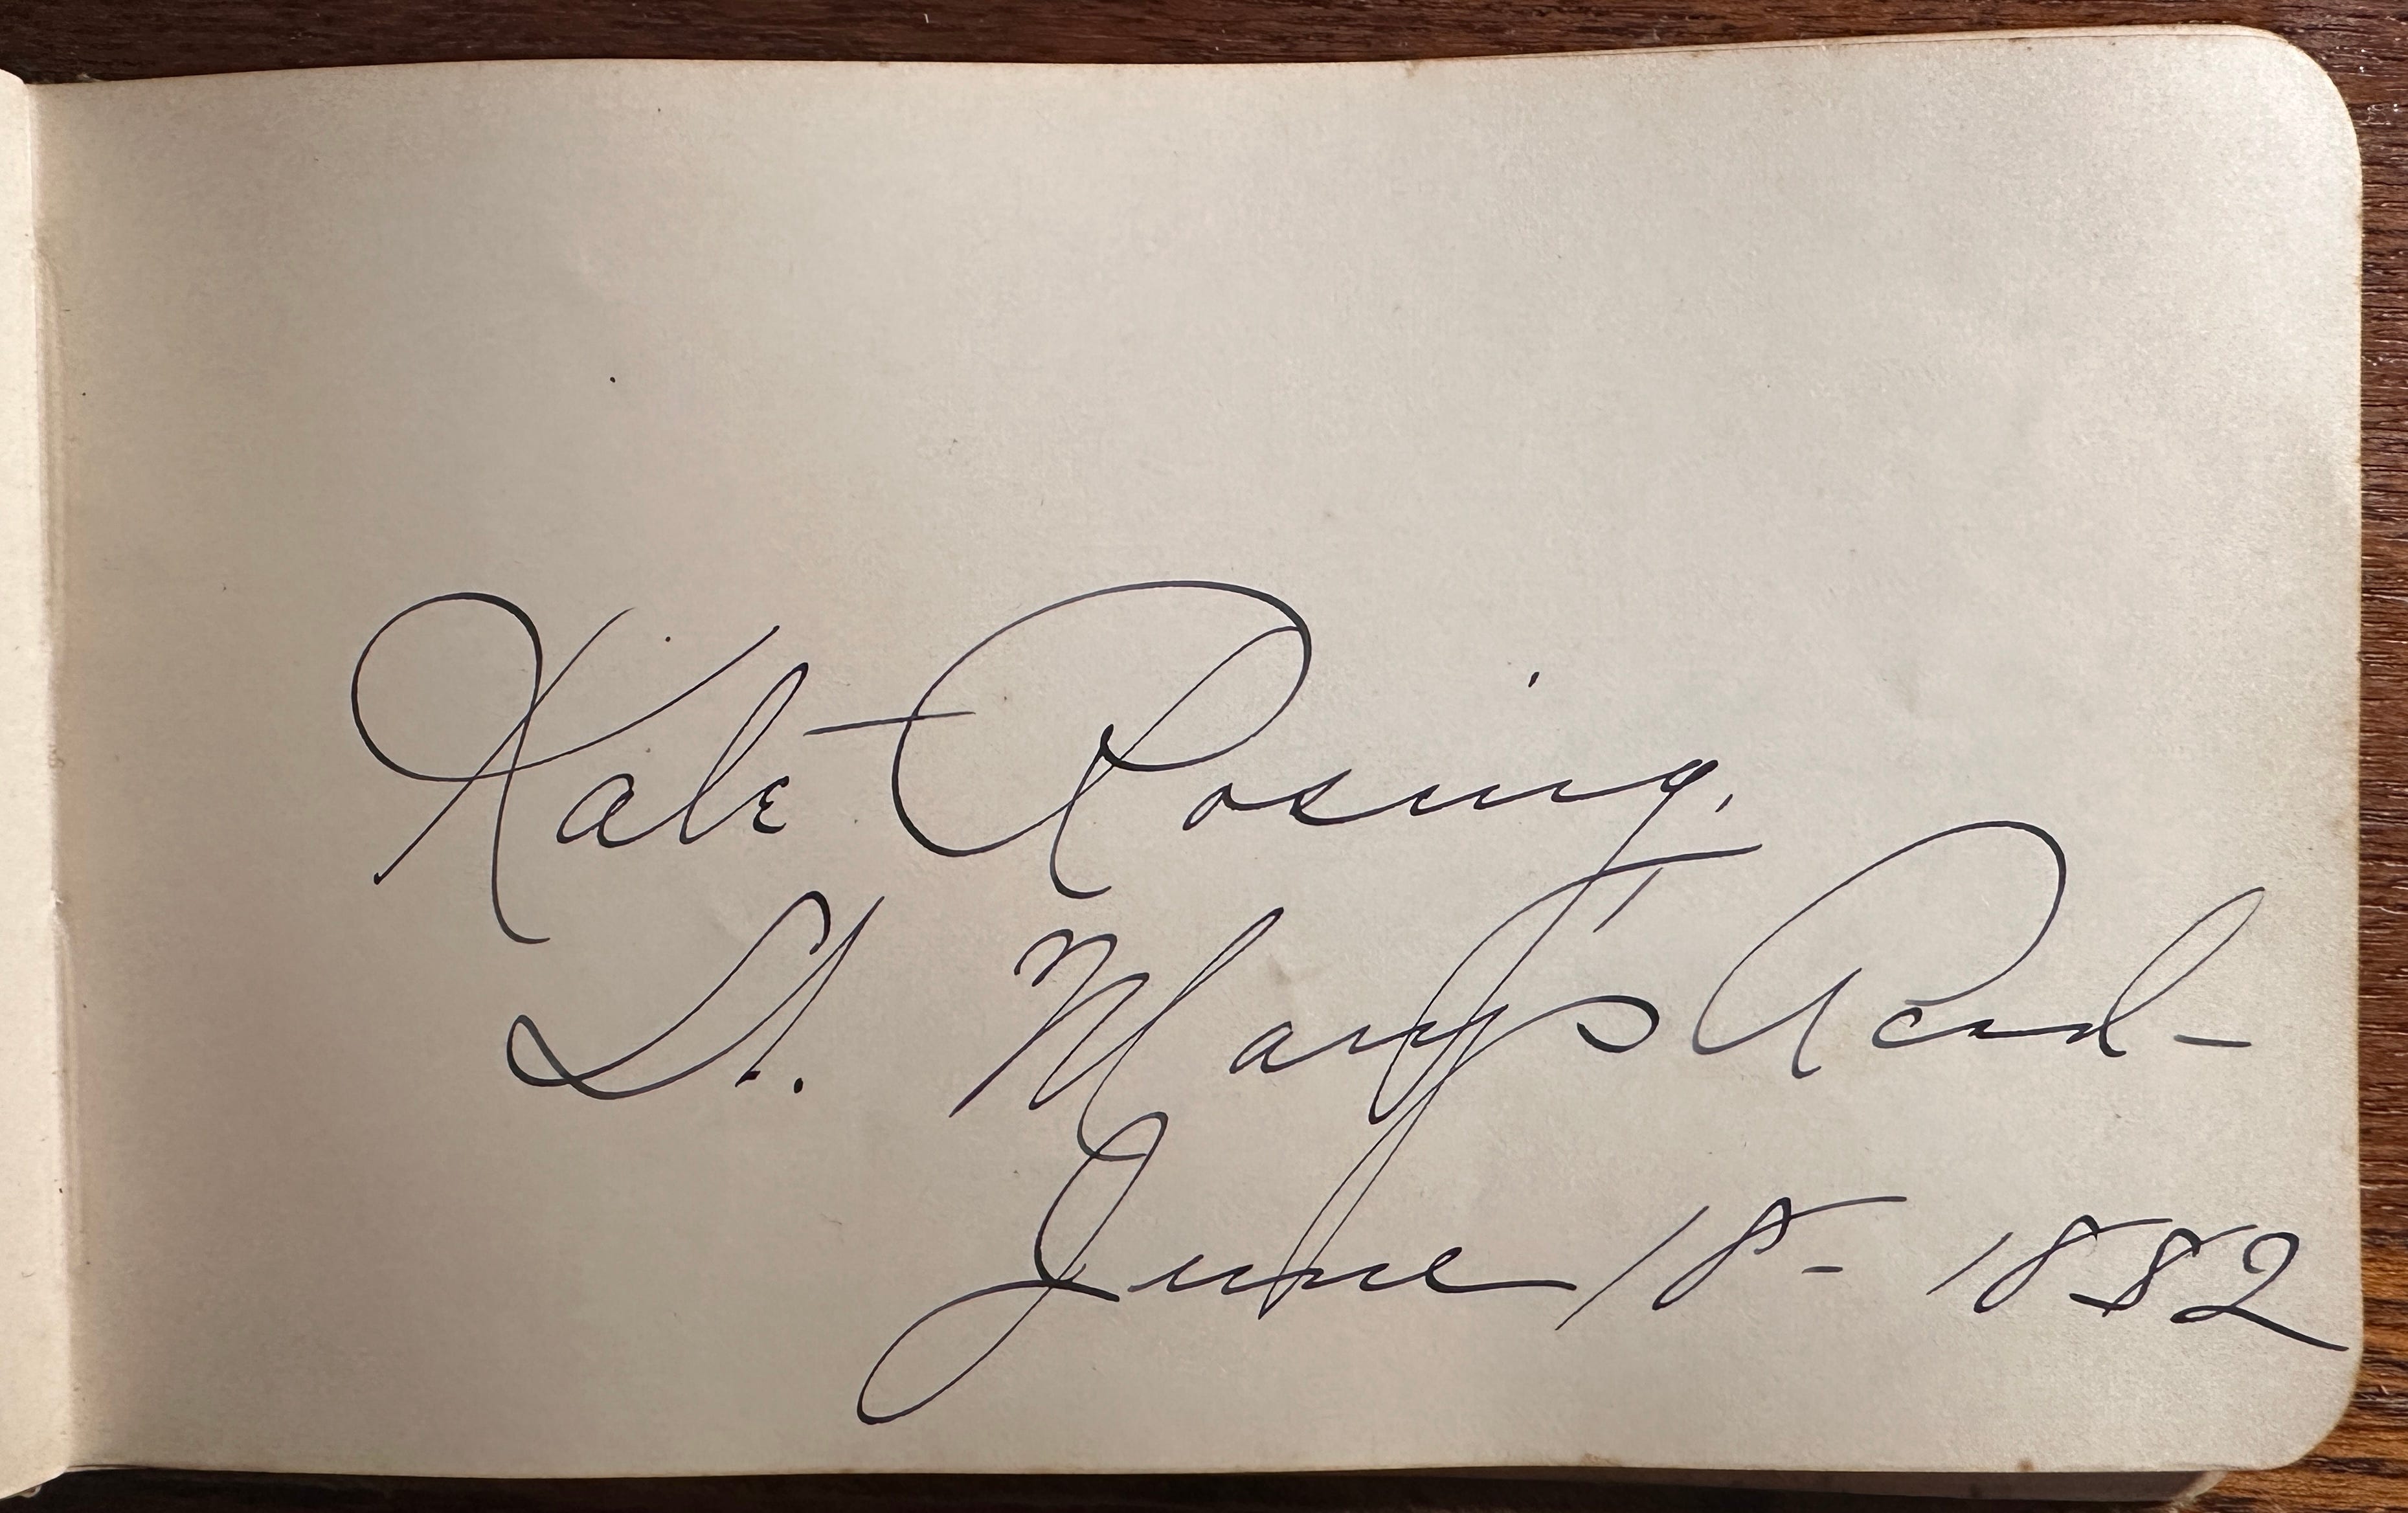 Kate Rosing,
St. Mary's Acad-
June 18- 1882